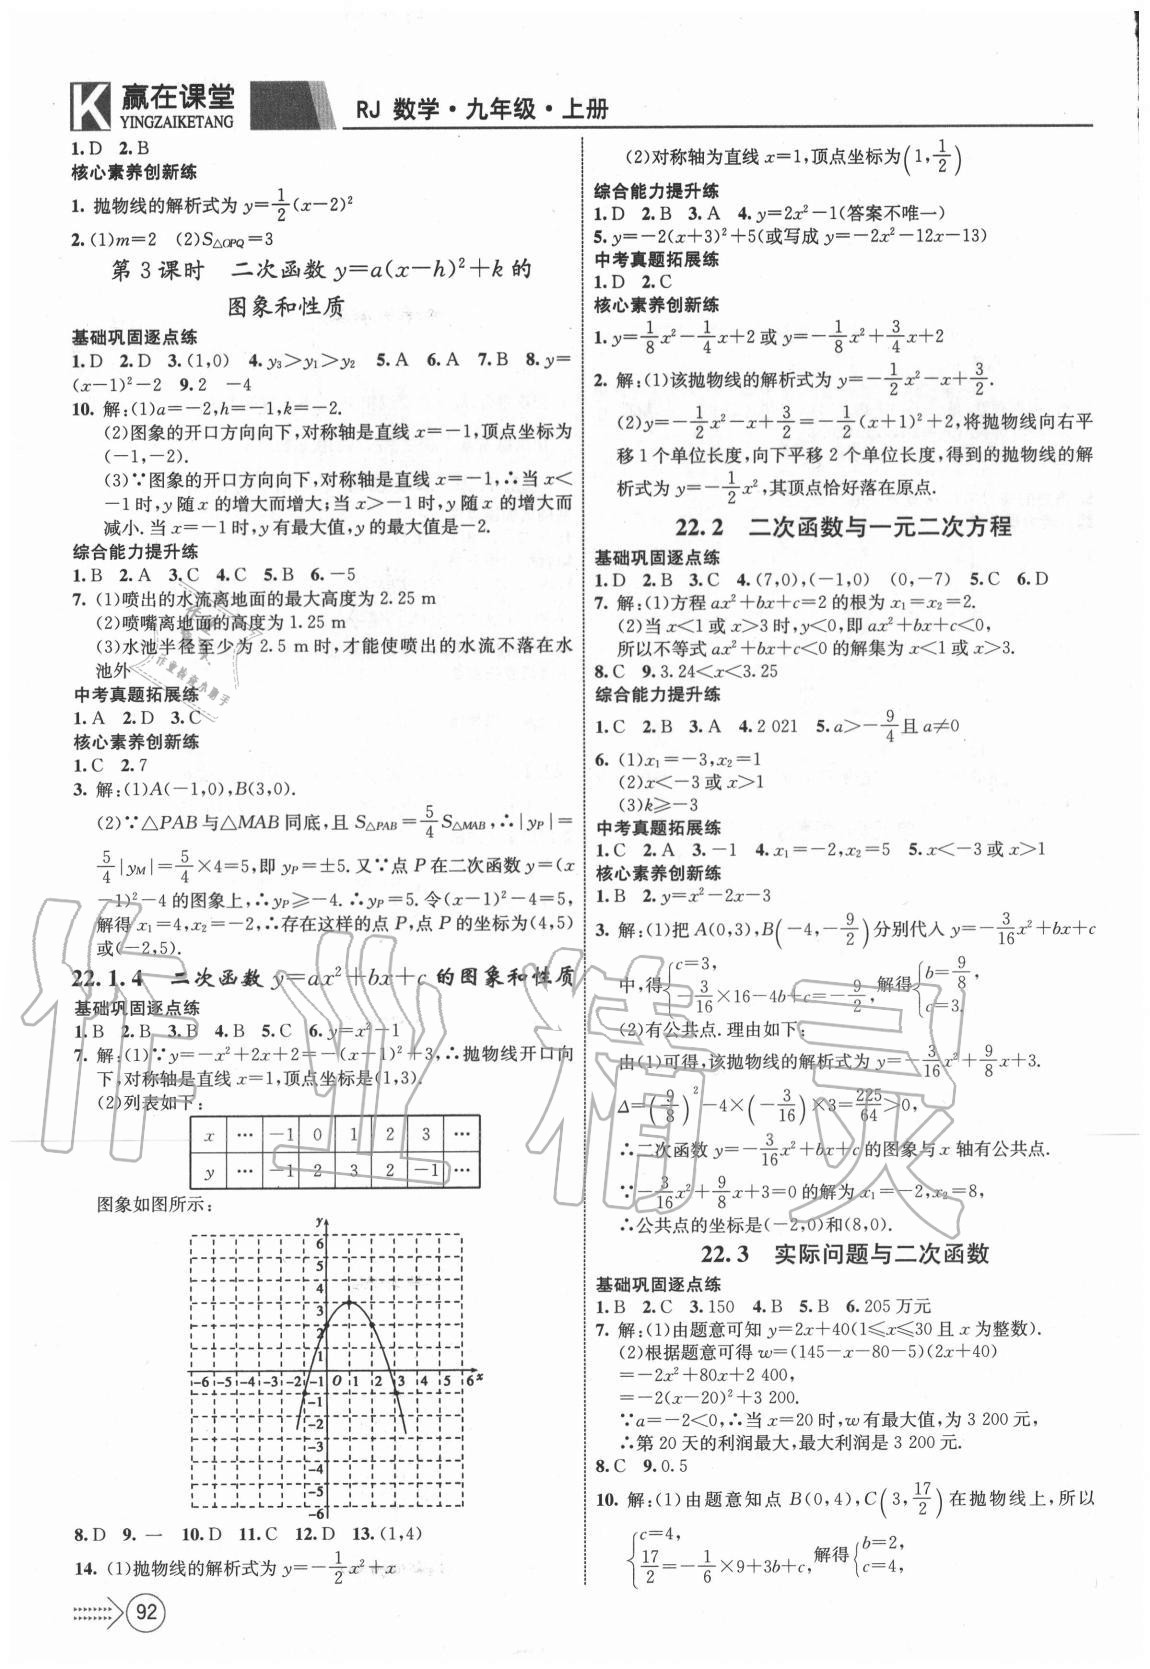 K 赢在课堂
YINGZAIKETANG
RJ 数学·九年级·上册
1.D 2.B
核心素养创新练
1. 抛物线的解析式为 y=1/2(x-2)²
2.(1)m=2 (2)S△OPQ=3
第3课时 二次函数 y=a(x-h)²+k 的
图象和性质
基础巩固逐点练
1.D 2.D 3.(1,0) 4.y₃>y₁>y₂ 5.A 6.A 7.B 8.y=
(x-1)²-2 9.2 -4
10. 解:(1)a=-2,h=-1,k=-2.
(2)图象的开口方向向下,对称轴是直线 x=-1,顶点坐标为
(-1,-2).
(3)∵图象的开口方向向下,对称轴是直线 x=-1,∴当 x<
-1时,y随 x 的增大而增大;当 x>-1时,y随 x 的增大而
减小.当 x=-1时,y有最大值,y的最大值是-2.
综合能力提升练
1.B 2.A 3.C 4.C 5.B 6.-5
7. (1)喷出的水流离地面的最大高度为 2.25 m
(2)喷嘴离地面的高度为 1.25 m
(3)水池半径至少为 2.5 m时,才能使喷出的水流不落在水
池外
中考真题拓展练
1.A 2.D 3.C
核心素养创新练
1.C 2.7
3. 解:(1)A(-1,0),B(3,0).
(2)∵△PAB与△MAB同底,且 S△PAB=5/4 S△MAB,∴|yP|=
5/4|yM|=5/4×4=5,即 yP=±5.又∵点 P 在二次函数 y=(x
-1)²-4 的图象上,∴yP≥-4.∴yP=5.令(x-1)²-4=5,
解得 x₁=4,x₂=-2,∴存在这样的点 P,点 P 的坐标为(4,5)
或(-2,5).
22.1.4 二次函数 y=ax²+bx+c 的图象和性质
基础巩固逐点练
1.B 2.B 3.B 4.B 5.C 6.y=x²-1
7. 解:(1)∵y=-x²+2x+2=-(x-1)²+3,∴抛物线开口向
下,对称轴是直线 x=1,顶点坐标是(1,3).
(2)列表如下:
x … -1 0 1 2 3 …
y … -1 2 3 2 -1 …
图象如图所示:
y
6
5
4
3
2
1
-6 -5 -4 -3 -2 -1 O 1 2 3 4 5 6 x
-1
-2
-3
-4
-5
-6
8.D 9.一 10.D 11.C 12.D 13.(1,4)
14. (1)抛物线的解析式为 y=-1/2x²+x
92
(2)对称轴为直线 x=1,顶点坐标为(1,1/2)
综合能力提升练
1.D 2.B 3.A 4.y=2x²-1(答案不唯一)
5.y=-2(x+3)²+5(或写成 y=-2x²-12x-13)
中考真题拓展练
1.D 2.C
核心素养创新练
1.y=1/8x²-1/4x+2 或 y=-1/8x²+3/4x+2
2. 解:(1)该抛物线的解析式为 y=-1/2x²-x+3/2.
(2)y=-1/2x²-x+3/2=-1/2(x+1)²+2,将抛物线向右平
移1个单位长度,向下平移 2 个单位长度,得到的抛物线的解
析式为 y=-1/2x²,其顶点恰好落在原点.
22.2 二次函数与一元二次方程
基础巩固逐点练
1.D 2.B 3.C 4.(7,0),(-1,0) (0,-7) 5.C 6.D
7. 解:(1)方程 ax²+bx+c=2 的根为 x₁=x₂=2.
(2)当 x<1 或 x>3时,y<0,即 ax²+bx+c<0,
所以不等式 ax²+bx+c<0 的解集为 x<1 或 x>3.
8.C 9.3.24<x<3.25
综合能力提升练
1.C 2.B 3.A 4.2 021 5.a>-9/4且 a≠0
6. (1)x₁=-3,x₂=1
(2)x<-3或 x>1
(3)k≥-3
中考真题拓展练
1.C 2.A 3.-1 4.x₁=-2,x₂=5 5.x<-3 或 x>1
核心素养创新练
1.B 2.y=x²-2x-3
3. 解:(1)把 A(0,3),B(-4,-9/2)分别代入 y=-3/16x²+bx+c
中,得{c=3, -3/16×16-4b+c=-9/2, 解得{b=9/8, c=3.
(2)有公共点.理由如下:
由(1)可得,该抛物线的解析式为 y=-3/16x²+9/8x+3.
Δ=(9/8)²-4×(-3/16)×3=225/64>0,
∴二次函数 y=-3/16x²+bx+c 的图象与 x 轴有公共点.
∵-3/16x²+9/8x+3=0 的解为 x₁=-2,x₂=8,
∴公共点的坐标是(-2,0)和(8,0).
22.3 实际问题与二次函数
基础巩固逐点练
1.B 2.C 3.150 4.B 5.B 6.205万元
7. 解:(1)由题意可知 y=2x+40(1≤x≤30 且 x 为整数).
(2)根据题意可得 w=(145-x-80-5)(2x+40)
=-2x²+80x+2 400,
=-2(x-20)²+3 200.
∵a=-2<0,∴当 x=20时,w有最大值,为 3 200 元,
∴第 20 天的利润最大,最大利润是 3 200 元.
8.C 9.0.5
10. 解:(1)由题意知点 B(0,4),C(3,17/2)在抛物线上,所以
{c=4, 17/2=-1/6×9+3b+c, 解得{b=2, c=4,
作业精灵
作业检查小助手